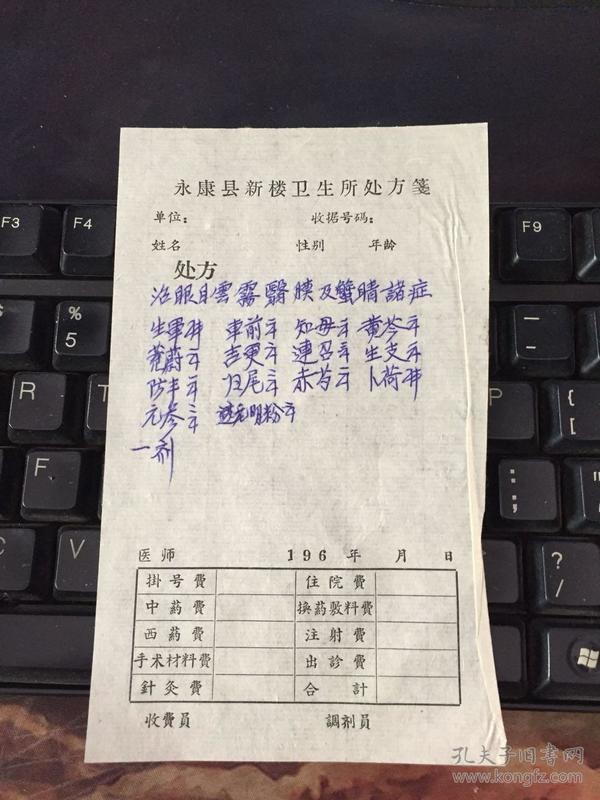 永康县新楼卫生所处方箋
单位： 收据号码：
姓名 性别 年龄
处方
治眼目雲霧醫膜及蟹睛諸症
生軍 車前 知母 黄芩
茺蔚 吉更 連召 生支
防丰 归尾 赤芍 卜荷
元参 明粉
一剂
医师 196 年 月 日
掛号費 住院費
中药費 換药敷料費
西药費 注射費
手术材料費 出診費
針灸費 合計
收費員 調剂員
F3 F4 F9
% 5
R T P
F
孔夫子旧書网
www.kongfz.com